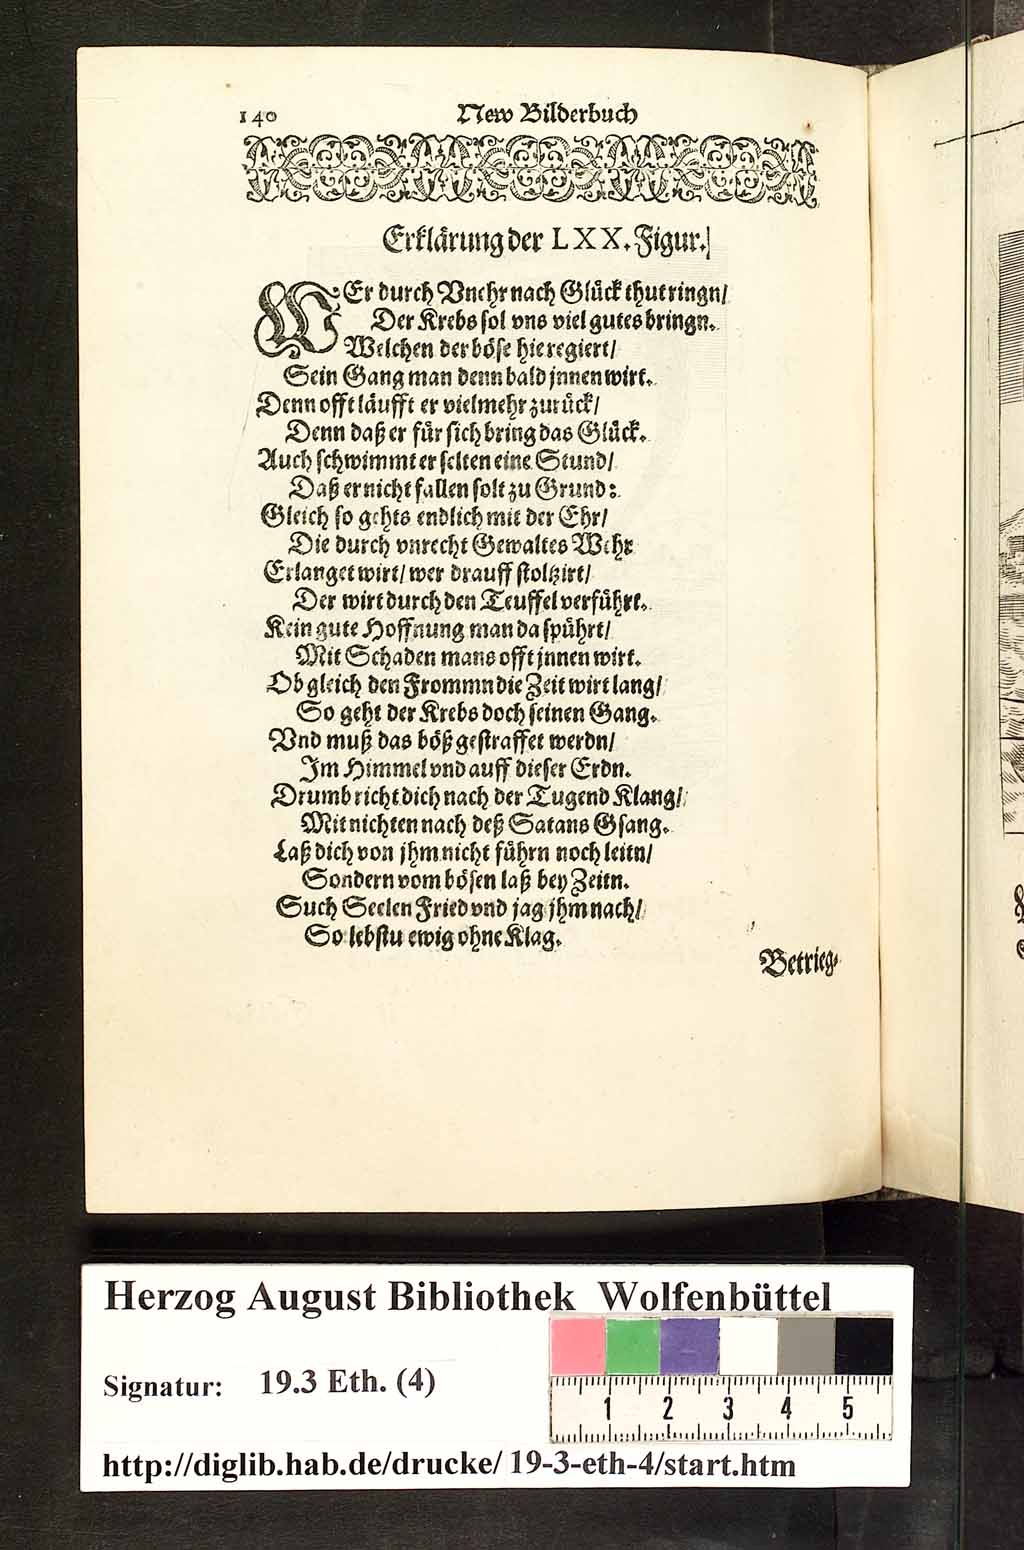 140
New Bilderbuch
Erklärung der LXX. Figur.
WEr durch Vnehr nach Glück thut ringn/
Der Krebs sol vns viel gutes bringn.
Welchen der böse hie regiert/
Sein Gang man denn bald jnnen wirt.
Denn offt läufft er vielmehr zurück/
Denn daß er für sich bring das Glück.
Auch schwimmt er selten eine Stund/
Daß er nicht fallen solt zu Grund:
Gleich so gehts endlich mit der Ehr/
Die durch vnrecht Gewaltes Wehr
Erlanget wirt/ wer drauff stoltzirt/
Der wirt durch den Teuffel verführt.
Kein gute Hoffnung man da spührt/
Mit Schaden mans offt jnnen wirt.
Ob gleich den Frommn die Zeit wirt lang/
So geht der Krebs doch seinen Gang.
Vnd muß das böß gestraffet werdn/
Im Himmel vnd auff dieser Erdn.
Drumb richt dich nach der Tugend Klang/
Mit nichten nach deß Satans Gsang.
Laß dich von jhm nicht führn noch leitn/
Sondern vom bösen laß bey Zeitn.
Such Seelen Fried vnd jag jhm nach/
So lebstu ewig ohne Klag.
Betrieg-
Herzog August Bibliothek Wolfenbüttel
Signatur: 19.3 Eth. (4)
1 2 3 4 5
http://diglib.hab.de/drucke/ 19-3-eth-4/start.htm